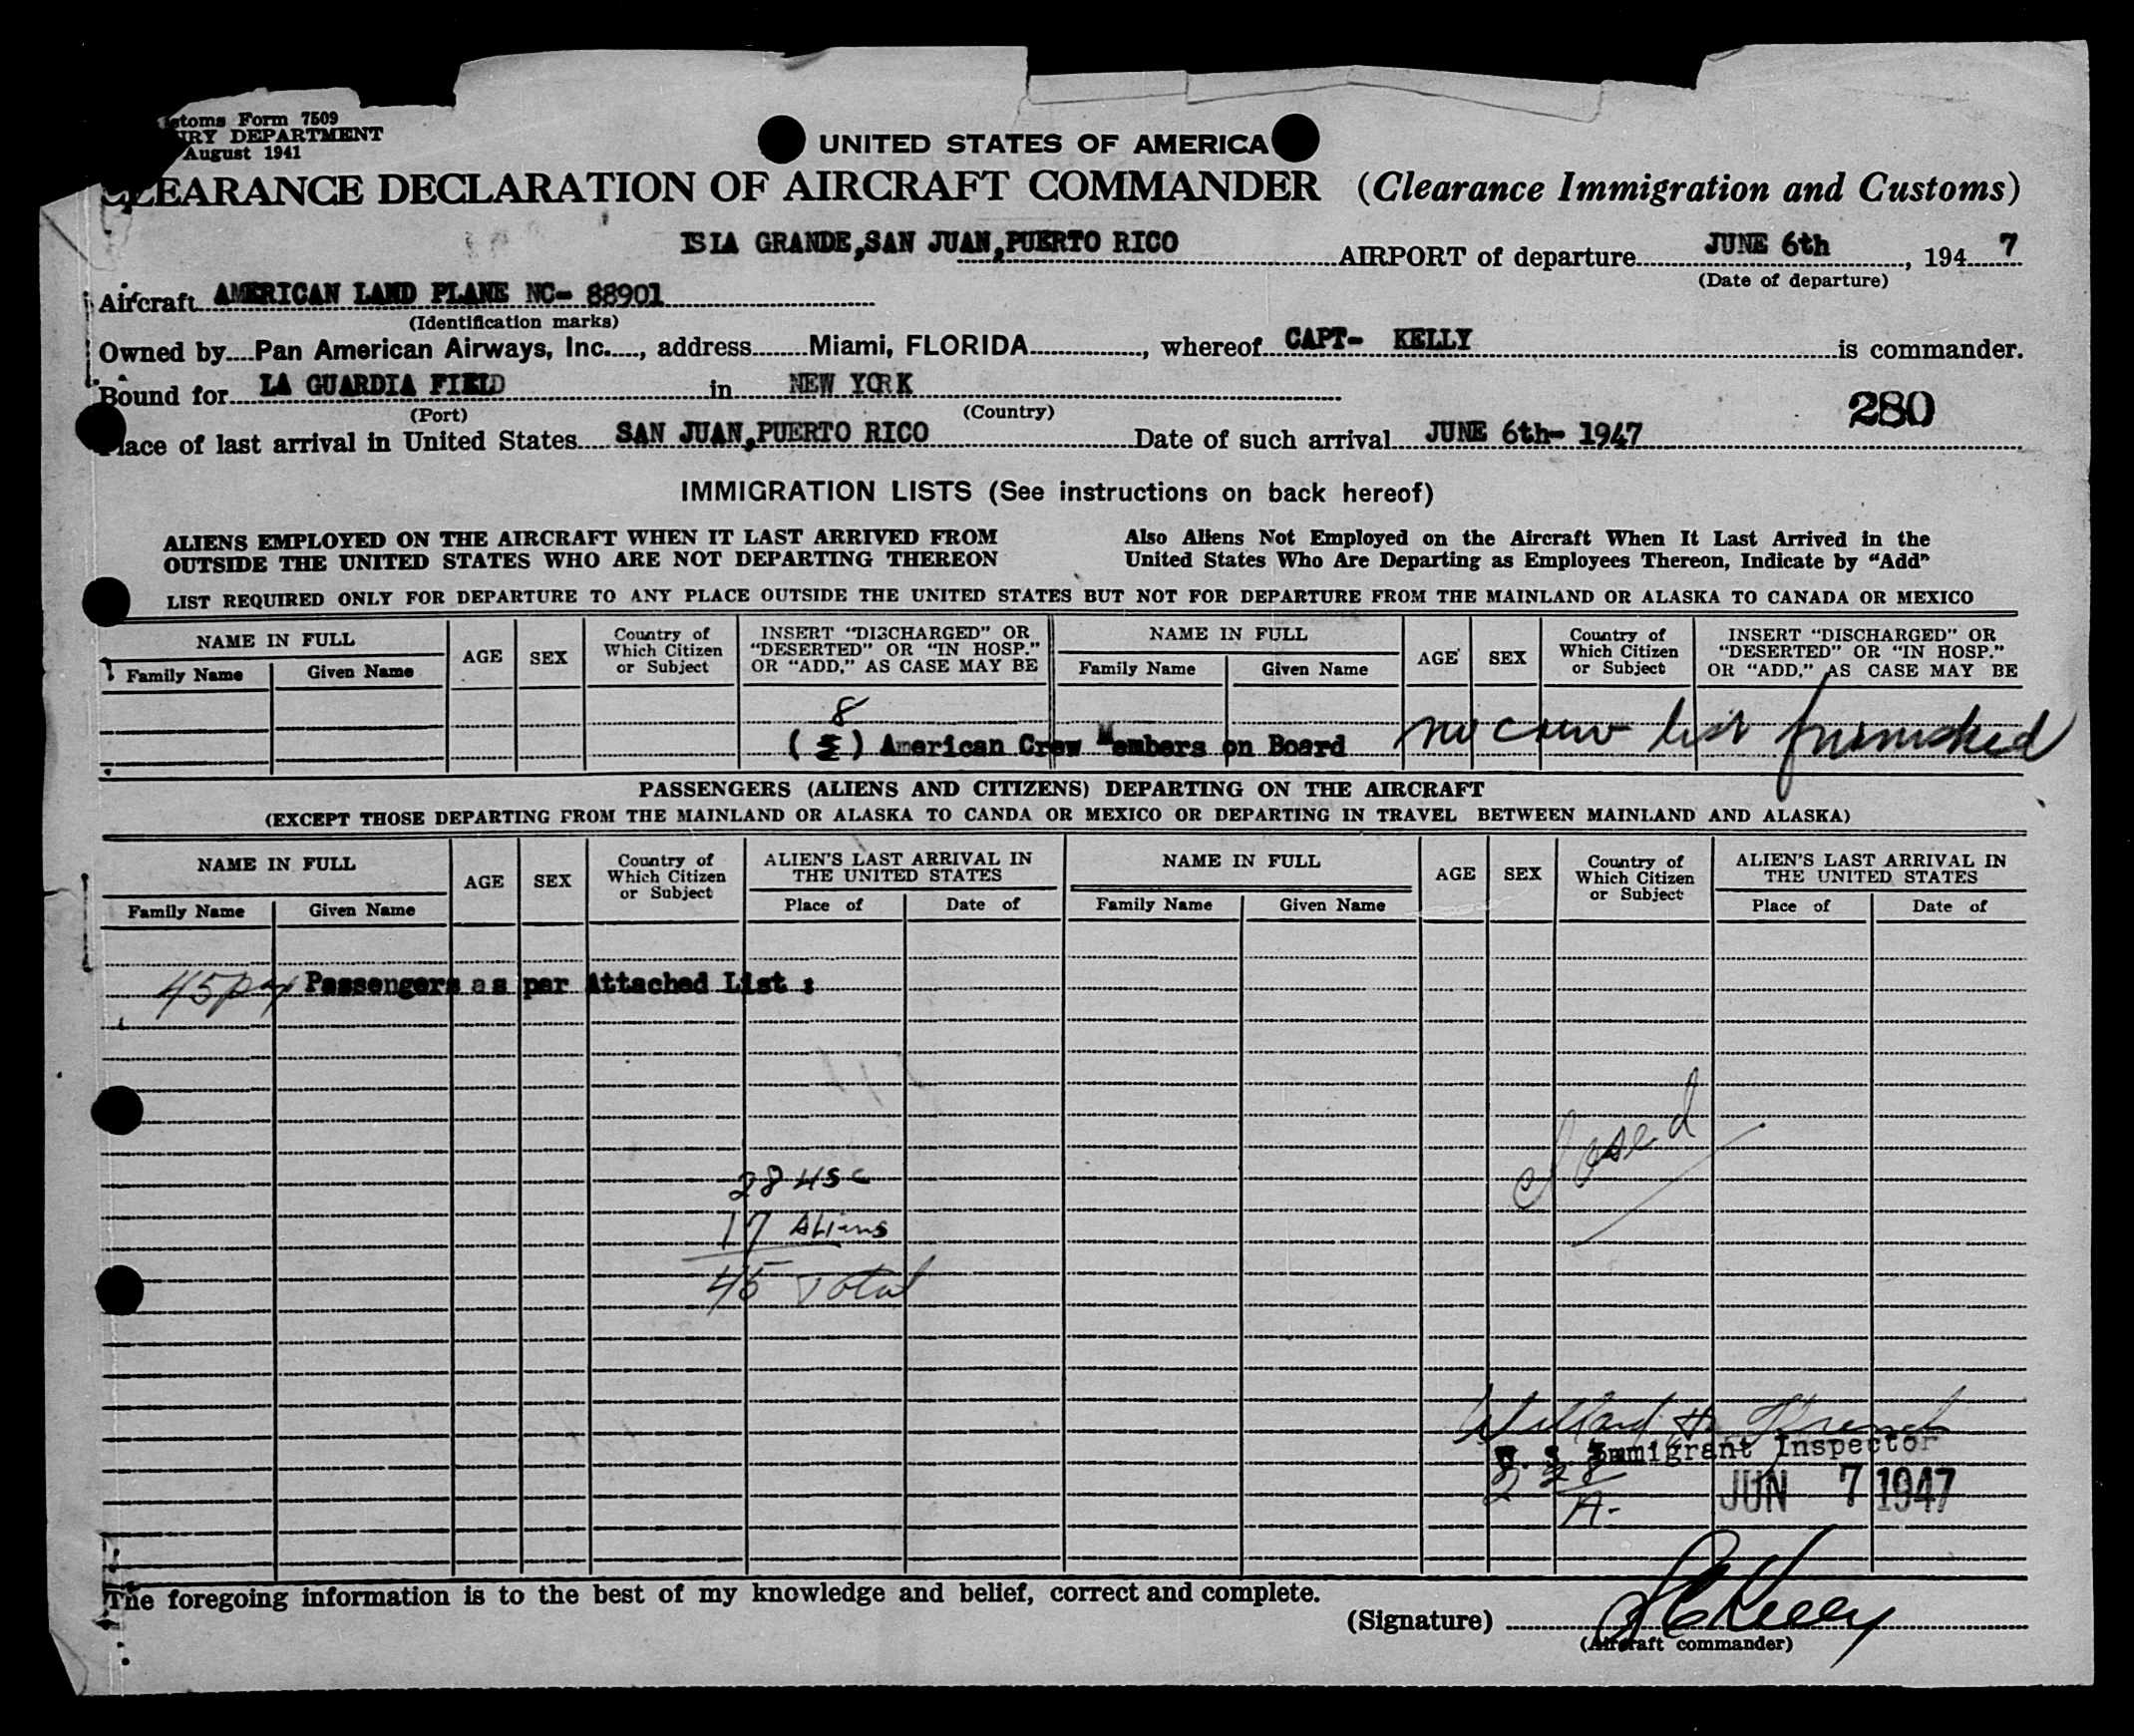 toms Form 7509
RY DEPARTMENT
August 1941
UNITED STATES OF AMERICA
CLEARANCE DECLARATION OF AIRCRAFT COMMANDER (Clearance Immigration and Customs)
ISLA GRANDE,SAN JUAN,PUERTO RICO AIRPORT of departure JUNE 6th, 1947
(Date of departure)
Aircraft AMERICAN LAND PLANE NC- 88901
(Identification marks)
Owned by Pan American Airways, Inc., address Miami, FLORIDA, whereof CAPT- KELLY is commander.
Bound for LA GUARDIA FIELD in NEW YORK
(Port) (Country)
280
Place of last arrival in United States SAN JUAN,PUERTO RICO Date of such arrival JUNE 6th- 1947
IMMIGRATION LISTS (See instructions on back hereof)
ALIENS EMPLOYED ON THE AIRCRAFT WHEN IT LAST ARRIVED FROM
OUTSIDE THE UNITED STATES WHO ARE NOT DEPARTING THEREON
Also Aliens Not Employed on the Aircraft When It Last Arrived in the
United States Who Are Departing as Employees Thereon, Indicate by "Add"
LIST REQUIRED ONLY FOR DEPARTURE TO ANY PLACE OUTSIDE THE UNITED STATES BUT NOT FOR DEPARTURE FROM THE MAINLAND OR ALASKA TO CANADA OR MEXICO
NAME IN FULL
Family Name Given Name
AGE
SEX
Country of
Which Citizen
or Subject
INSERT "DISCHARGED" OR
"DESERTED" OR "IN HOSP."
OR "ADD," AS CASE MAY BE
NAME IN FULL
Family Name Given Name
AGE
SEX
Country of
Which Citizen
or Subject
INSERT "DISCHARGED" OR
"DESERTED" OR "IN HOSP."
OR "ADD," AS CASE MAY BE
8
( ) American Crew Members on Board no crew list furnished
PASSENGERS (ALIENS AND CITIZENS) DEPARTING ON THE AIRCRAFT
(EXCEPT THOSE DEPARTING FROM THE MAINLAND OR ALASKA TO CANDA OR MEXICO OR DEPARTING IN TRAVEL BETWEEN MAINLAND AND ALASKA)
NAME IN FULL
Family Name Given Name
AGE
SEX
Country of
Which Citizen
or Subject
ALIEN'S LAST ARRIVAL IN
THE UNITED STATES
Place of Date of
NAME IN FULL
Family Name Given Name
AGE
SEX
Country of
Which Citizen
or Subject
ALIEN'S LAST ARRIVAL IN
THE UNITED STATES
Place of Date of
45 Passengers as per Attached List :
closed
28 USC
17 Aliens
45 Total
Willard H. French
U. S. Immigrant Inspector
JUN 7 1947
The foregoing information is to the best of my knowledge and belief, correct and complete.
(Signature) Kelly
(Aircraft commander)